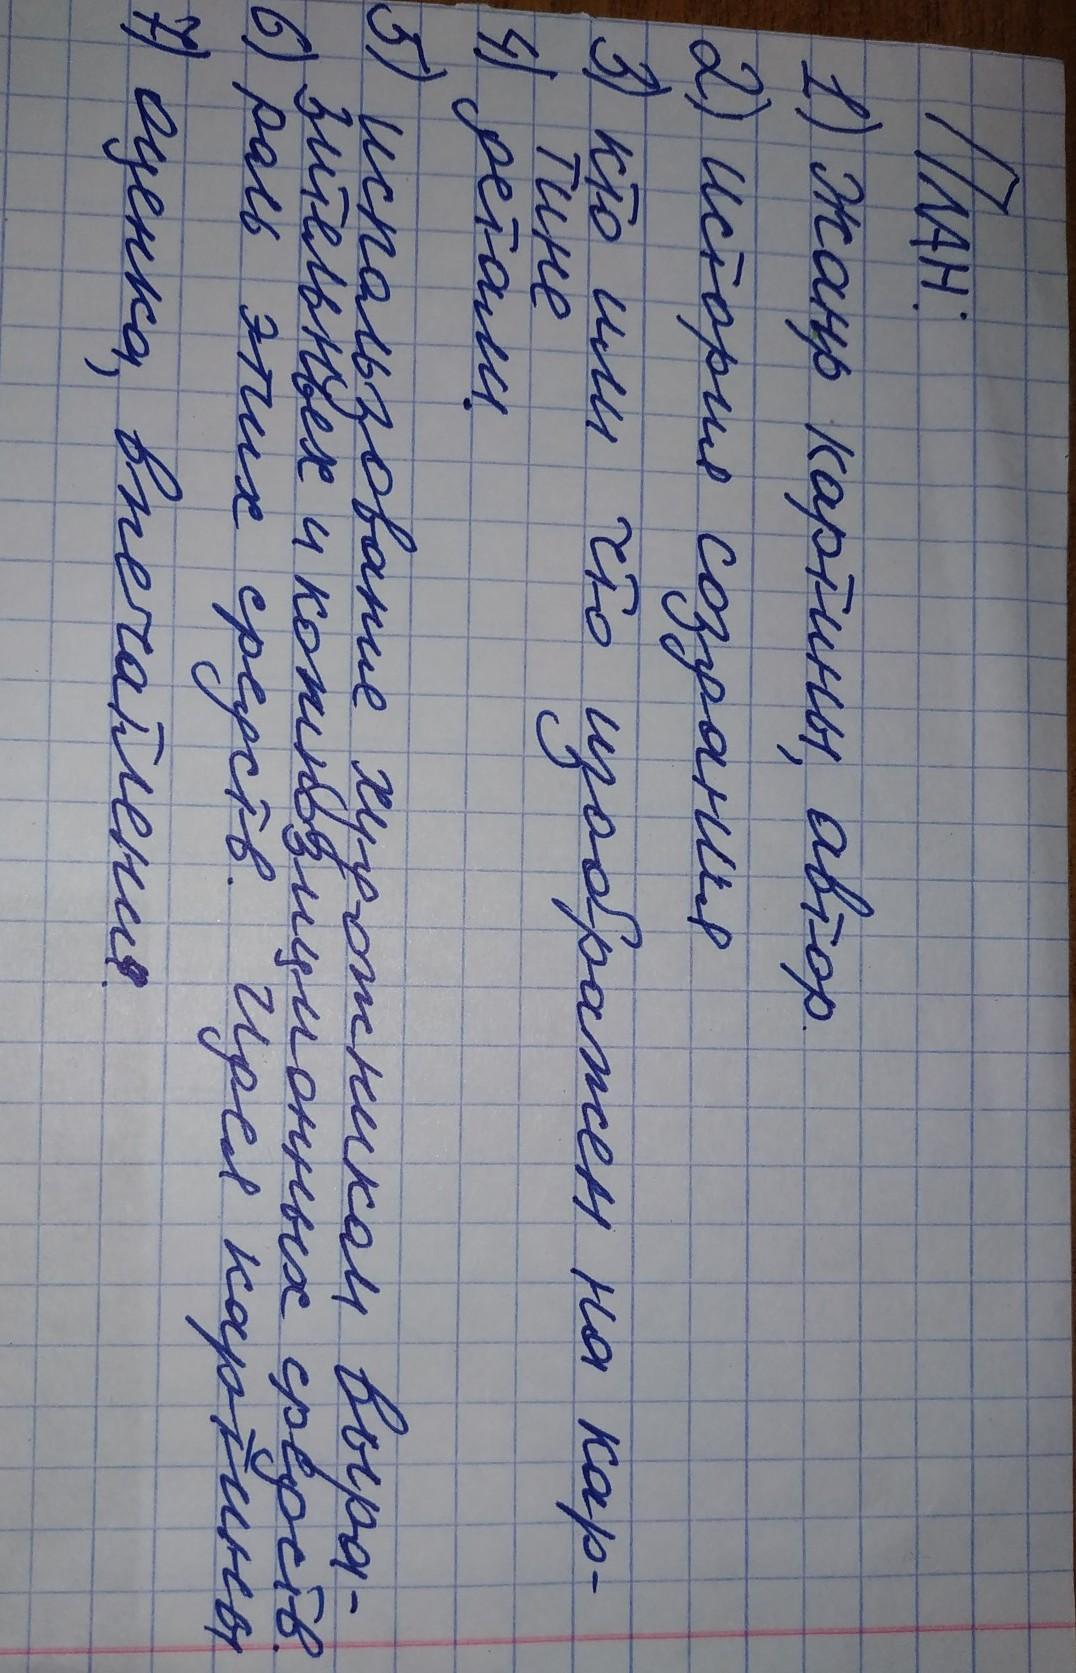 ПЛАН:
1) Жанр картины, автор.
2) история создания
3) кто или что изображен на кар-
тине
4) детали.
5) использование художником выра-
зительных и композиционных средств.
6) роль этих средств. Идея картины
7) оценка, впечатление.